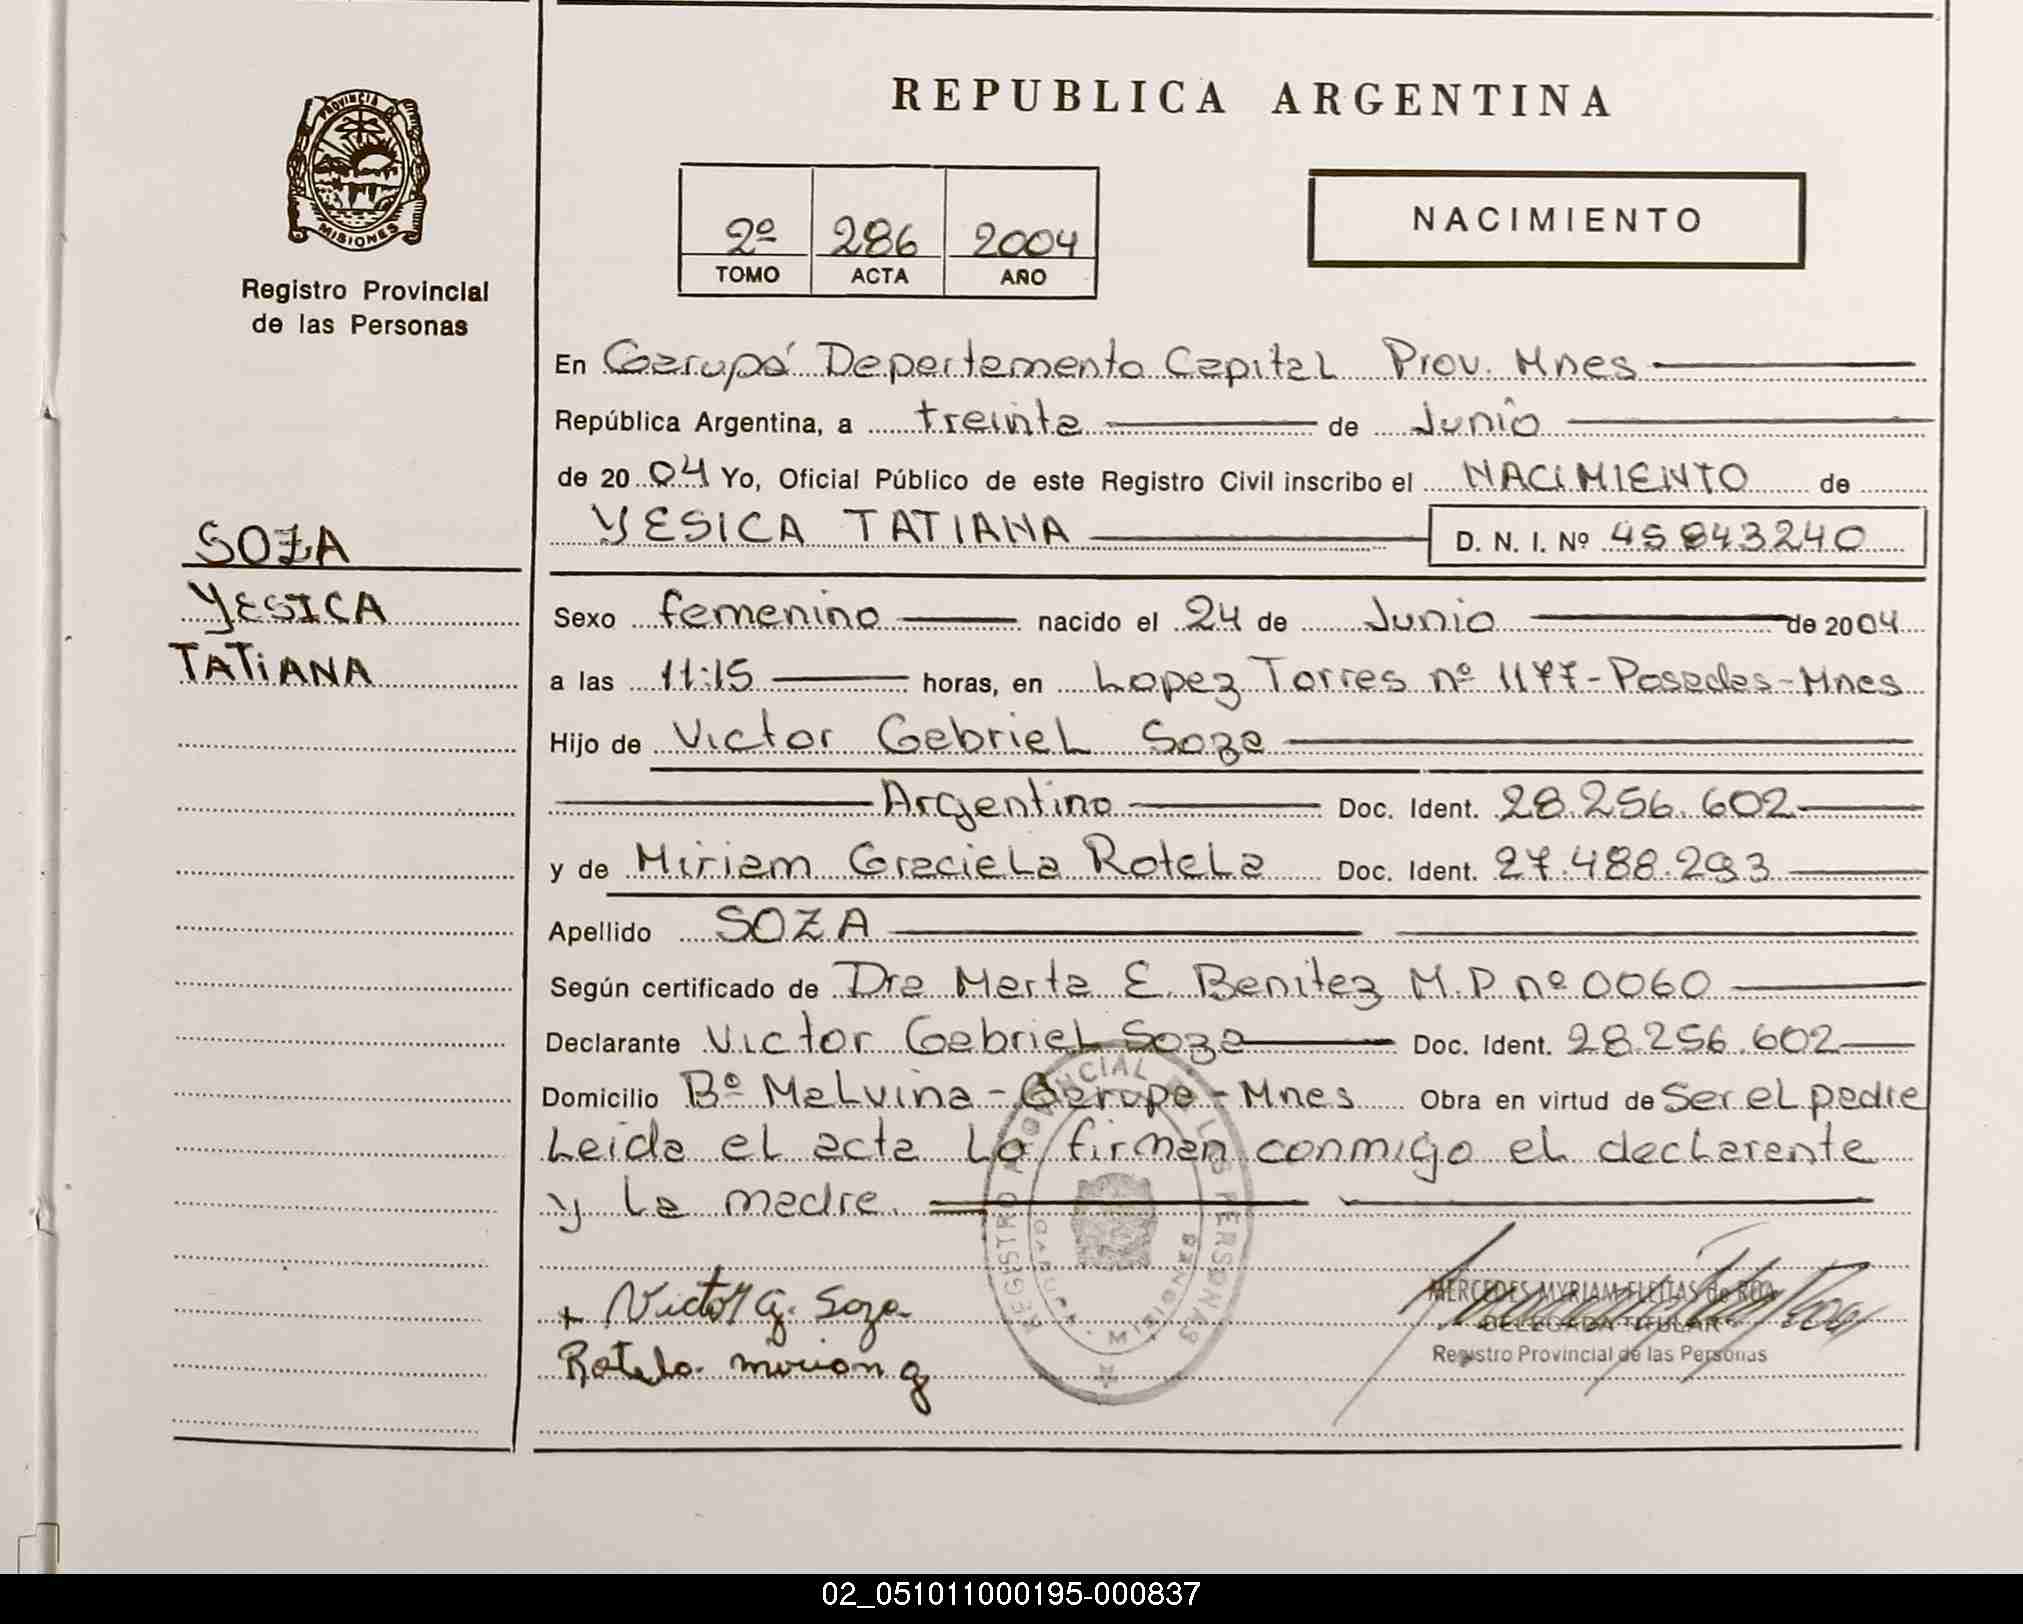 PROVINCIA DE
MISIONES
Registro Provincial
de las Personas
SOZA
YESICA
TATIANA
REPUBLICA ARGENTINA
2º 286 2004
TOMO ACTA AÑO
NACIMIENTO
En Garupá Departamento Capital Prov. Mnes
República Argentina, a treinta de Junio
de 2004 Yo, Oficial Público de este Registro Civil inscribo el NACIMIENTO de
YESICA TATIANA D. N. I. Nº 45843240
Sexo femenino nacido el 24 de Junio de 2004
a las 11:15 horas, en Lopez Torres nº 1177-Posadas-Mnes
Hijo de Victor Gabriel Soza
Argentino Doc. Ident. 28.256.602
y de Miriam Graciela Rotela Doc. Ident. 27.488.293
Apellido SOZA
Según certificado de Dra Marta E. Benitez M.P nº 0060
Declarante Victor Gabriel Soza Doc. Ident. 28.256.602
Domicilio Bº Malvina-Garupa-Mnes Obra en virtud de Ser el padre
Leida el acta La firman conmigo el declarante
y La madre.
REGISTRO PROVINCIAL DE LAS PERSONAS
GARUPA - MISIONES
+ Victor G. Soza
Rotela miriam g
MERCEDES MYRIAM FLEITAS de ROA
DELEGADA TITULAR
Registro Provincial de las Personas
02_051011000195-000837